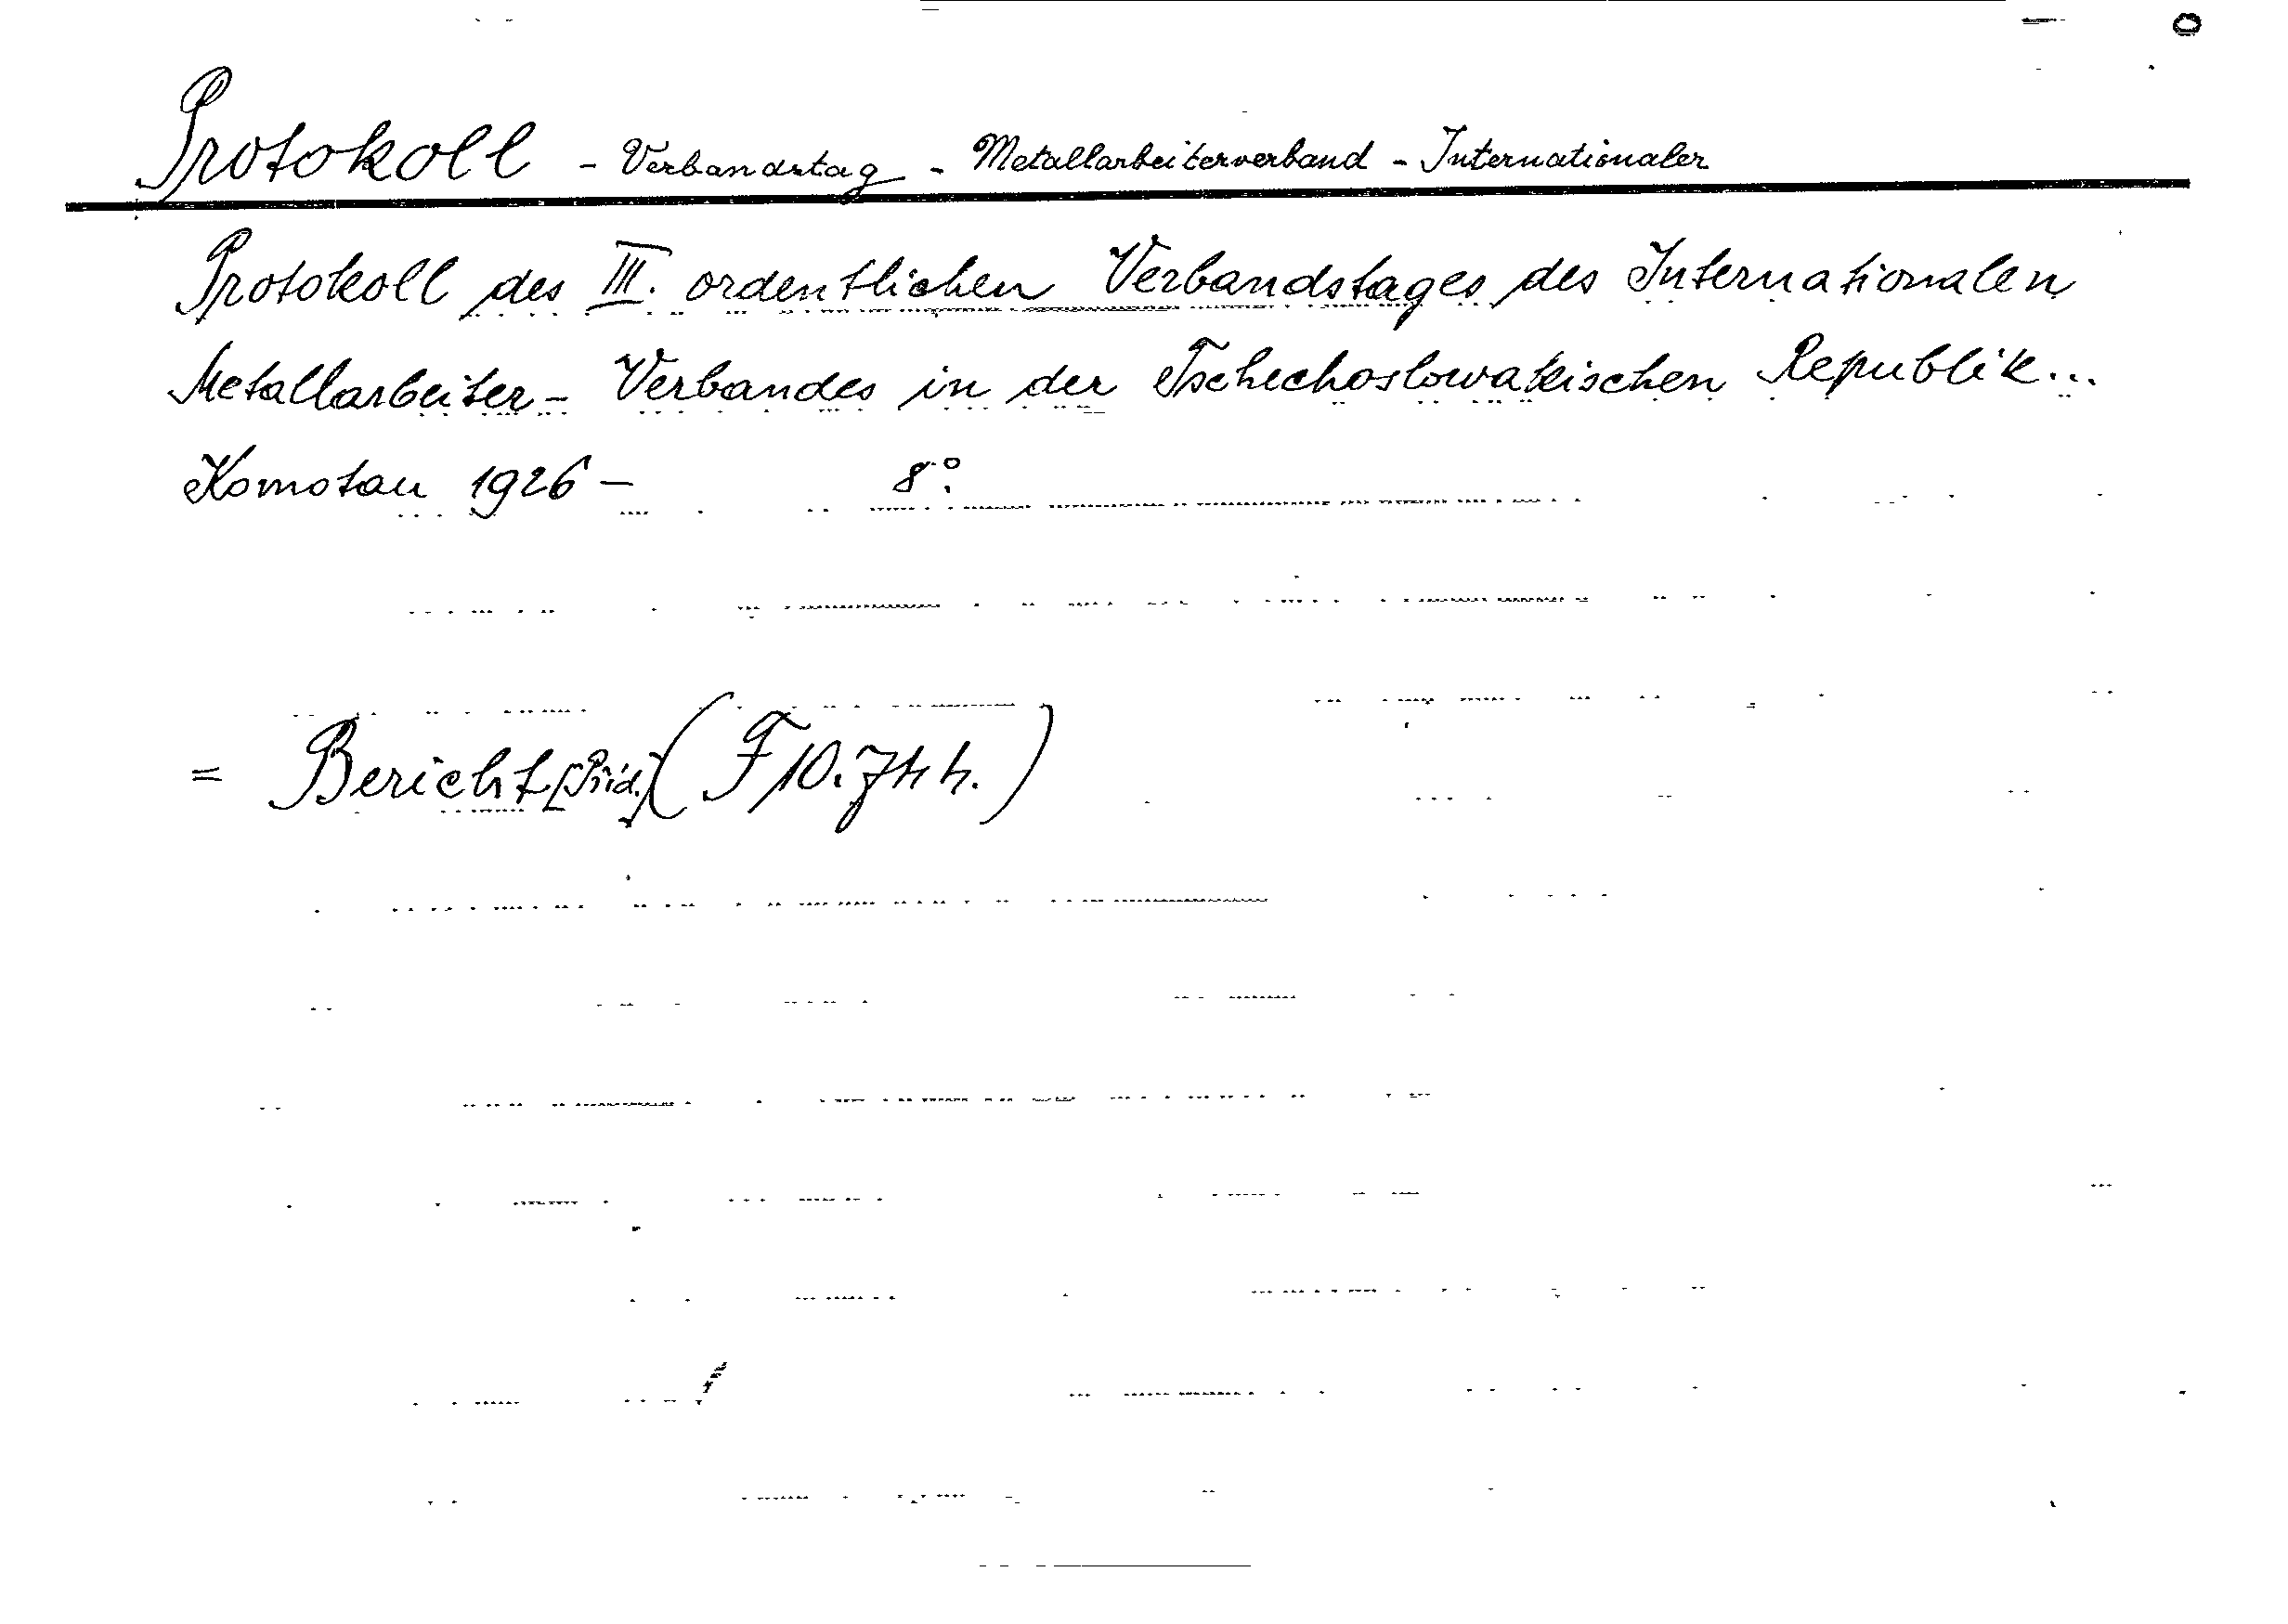 Protokoll - Verbandstag - Metallarbeiterverband - Internationaler
Protokoll des III. ordentlichen Verbandstages des Internationalen
Metallarbeiter- Verbandes in der Tschechoslowakischen Republik...
Komotau 1926 - 8°.
= Bericht